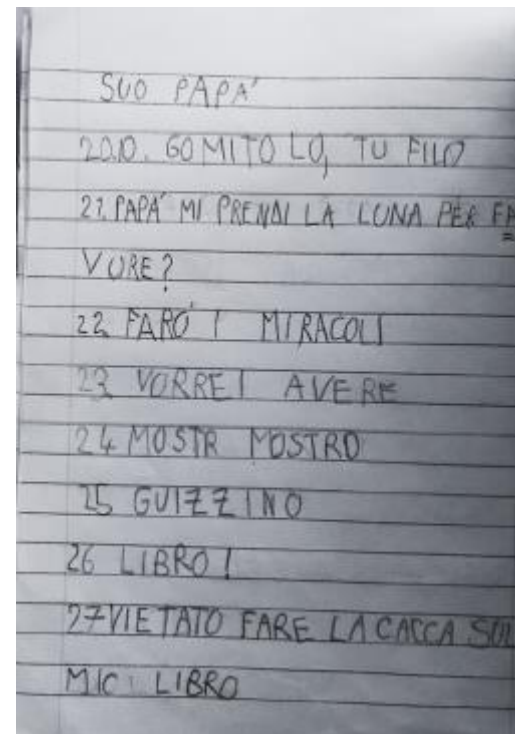 SUO PAPA'
20.10. GOMITOLO, TU FILO
21. PAPA' MI PRENDI LA LUNA PER FA
VORE?
22 FARÒ I MIRACOLI
23 VORREI AVERE
24 MOSTR MOSTRO
25 GUIZZINO
26 LIBRO!
27 VIETATO FARE LA CACCA SUL
MIO LIBRO